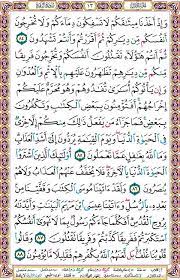 ١٣
وَإِذْ أَخَذْنَا مِيثَٰقَكُمْ لَا تَسْفِكُونَ دِمَآءَكُمْ وَلَا تُخْرِجُونَ أَنفُسَكُم
مِّن دِيَٰرِكُمْ ثُمَّ أَقْرَرْتُمْ وَأَنتُمْ تَشْهَدُونَ ٨٤
ثُمَّ أَنتُمْ هَٰٓؤُلَآءِ تَقْتُلُونَ أَنفُسَكُمْ وَتُخْرِجُونَ فَرِيقًا
مِّنكُم مِّن دِيَٰرِهِمْ تَظَٰهَرُونَ عَلَيْهِم بِٱلْإِثْمِ وَٱلْعُدْوَٰنِ
وَإِن يَأْتُوكُمْ أُسَٰرَىٰ تُفَٰدُوهُمْ وَهُوَ مُحَرَّمٌ عَلَيْكُمْ
إِخْرَاجُهُمْ أَفَتُؤْمِنُونَ بِبَعْضِ ٱلْكِتَٰبِ وَتَكْفُرُونَ
بِبَعْضٍ فَمَا جَزَآءُ مَن يَفْعَلُ ذَٰلِكَ مِنكُمْ إِلَّا خِزْيٌ
فِى ٱلْحَيَوٰةِ ٱلدُّنْيَا وَيَوْمَ ٱلْقِيَٰمَةِ يُرَدُّونَ إِلَىٰٓ أَشَدِّ ٱلْعَذَابِ
وَمَا ٱللَّهُ بِغَٰفِلٍ عَمَّا تَعْمَلُونَ ٨٥ أُو۟لَٰٓئِكَ ٱلَّذِينَ ٱشْتَرَوُا۟
ٱلْحَيَوٰةَ ٱلدُّنْيَا بِٱلْءَاخِرَةِ فَلَا يُخَفَّفُ عَنْهُمُ ٱلْعَذَابُ
وَلَا هُمْ يُنصَرُونَ ٨٦ وَلَقَدْ ءَاتَيْنَا مُوسَى ٱلْكِتَٰبَ وَقَفَّيْنَا مِنۢ
بَعْدِهِۦ بِٱلرُّسُلِ وَءَاتَيْنَا عِيسَى ٱبْنَ مَرْيَمَ ٱلْبَيِّنَٰتِ وَأَيَّدْنَٰهُ
بِرُوحِ ٱلْقُدُسِ أَفَكُلَّمَا جَآءَكُمْ رَسُولٌۢ بِمَا لَا تَهْوَىٰٓ أَنفُسُكُمُ
ٱسْتَكْبَرْتُمْ فَفَرِيقًا كَذَّبْتُمْ وَفَرِيقًا تَقْتُلُونَ ٨٧ وَقَالُوا۟
قُلُوبُنَا غُلْفٌۢ بَل لَّعَنَهُمُ ٱللَّهُ بِكُفْرِهِمْ فَقَلِيلًا مَّا يُؤْمِنُونَ ٨٨